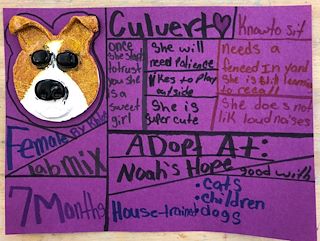 Culvert♡
Know to sit
once
she start
to trust
you she
is a
sweet
girl
she will
need Patience
likes to play
outside
She is
super cute
needs a
fenced In yard
she is still learning
to recall
she does not
lik loud noises
Female
lab mix
7 Months
ADopt At:
Noah's Hope
good with
• cats
• children
• dogs
House-trained